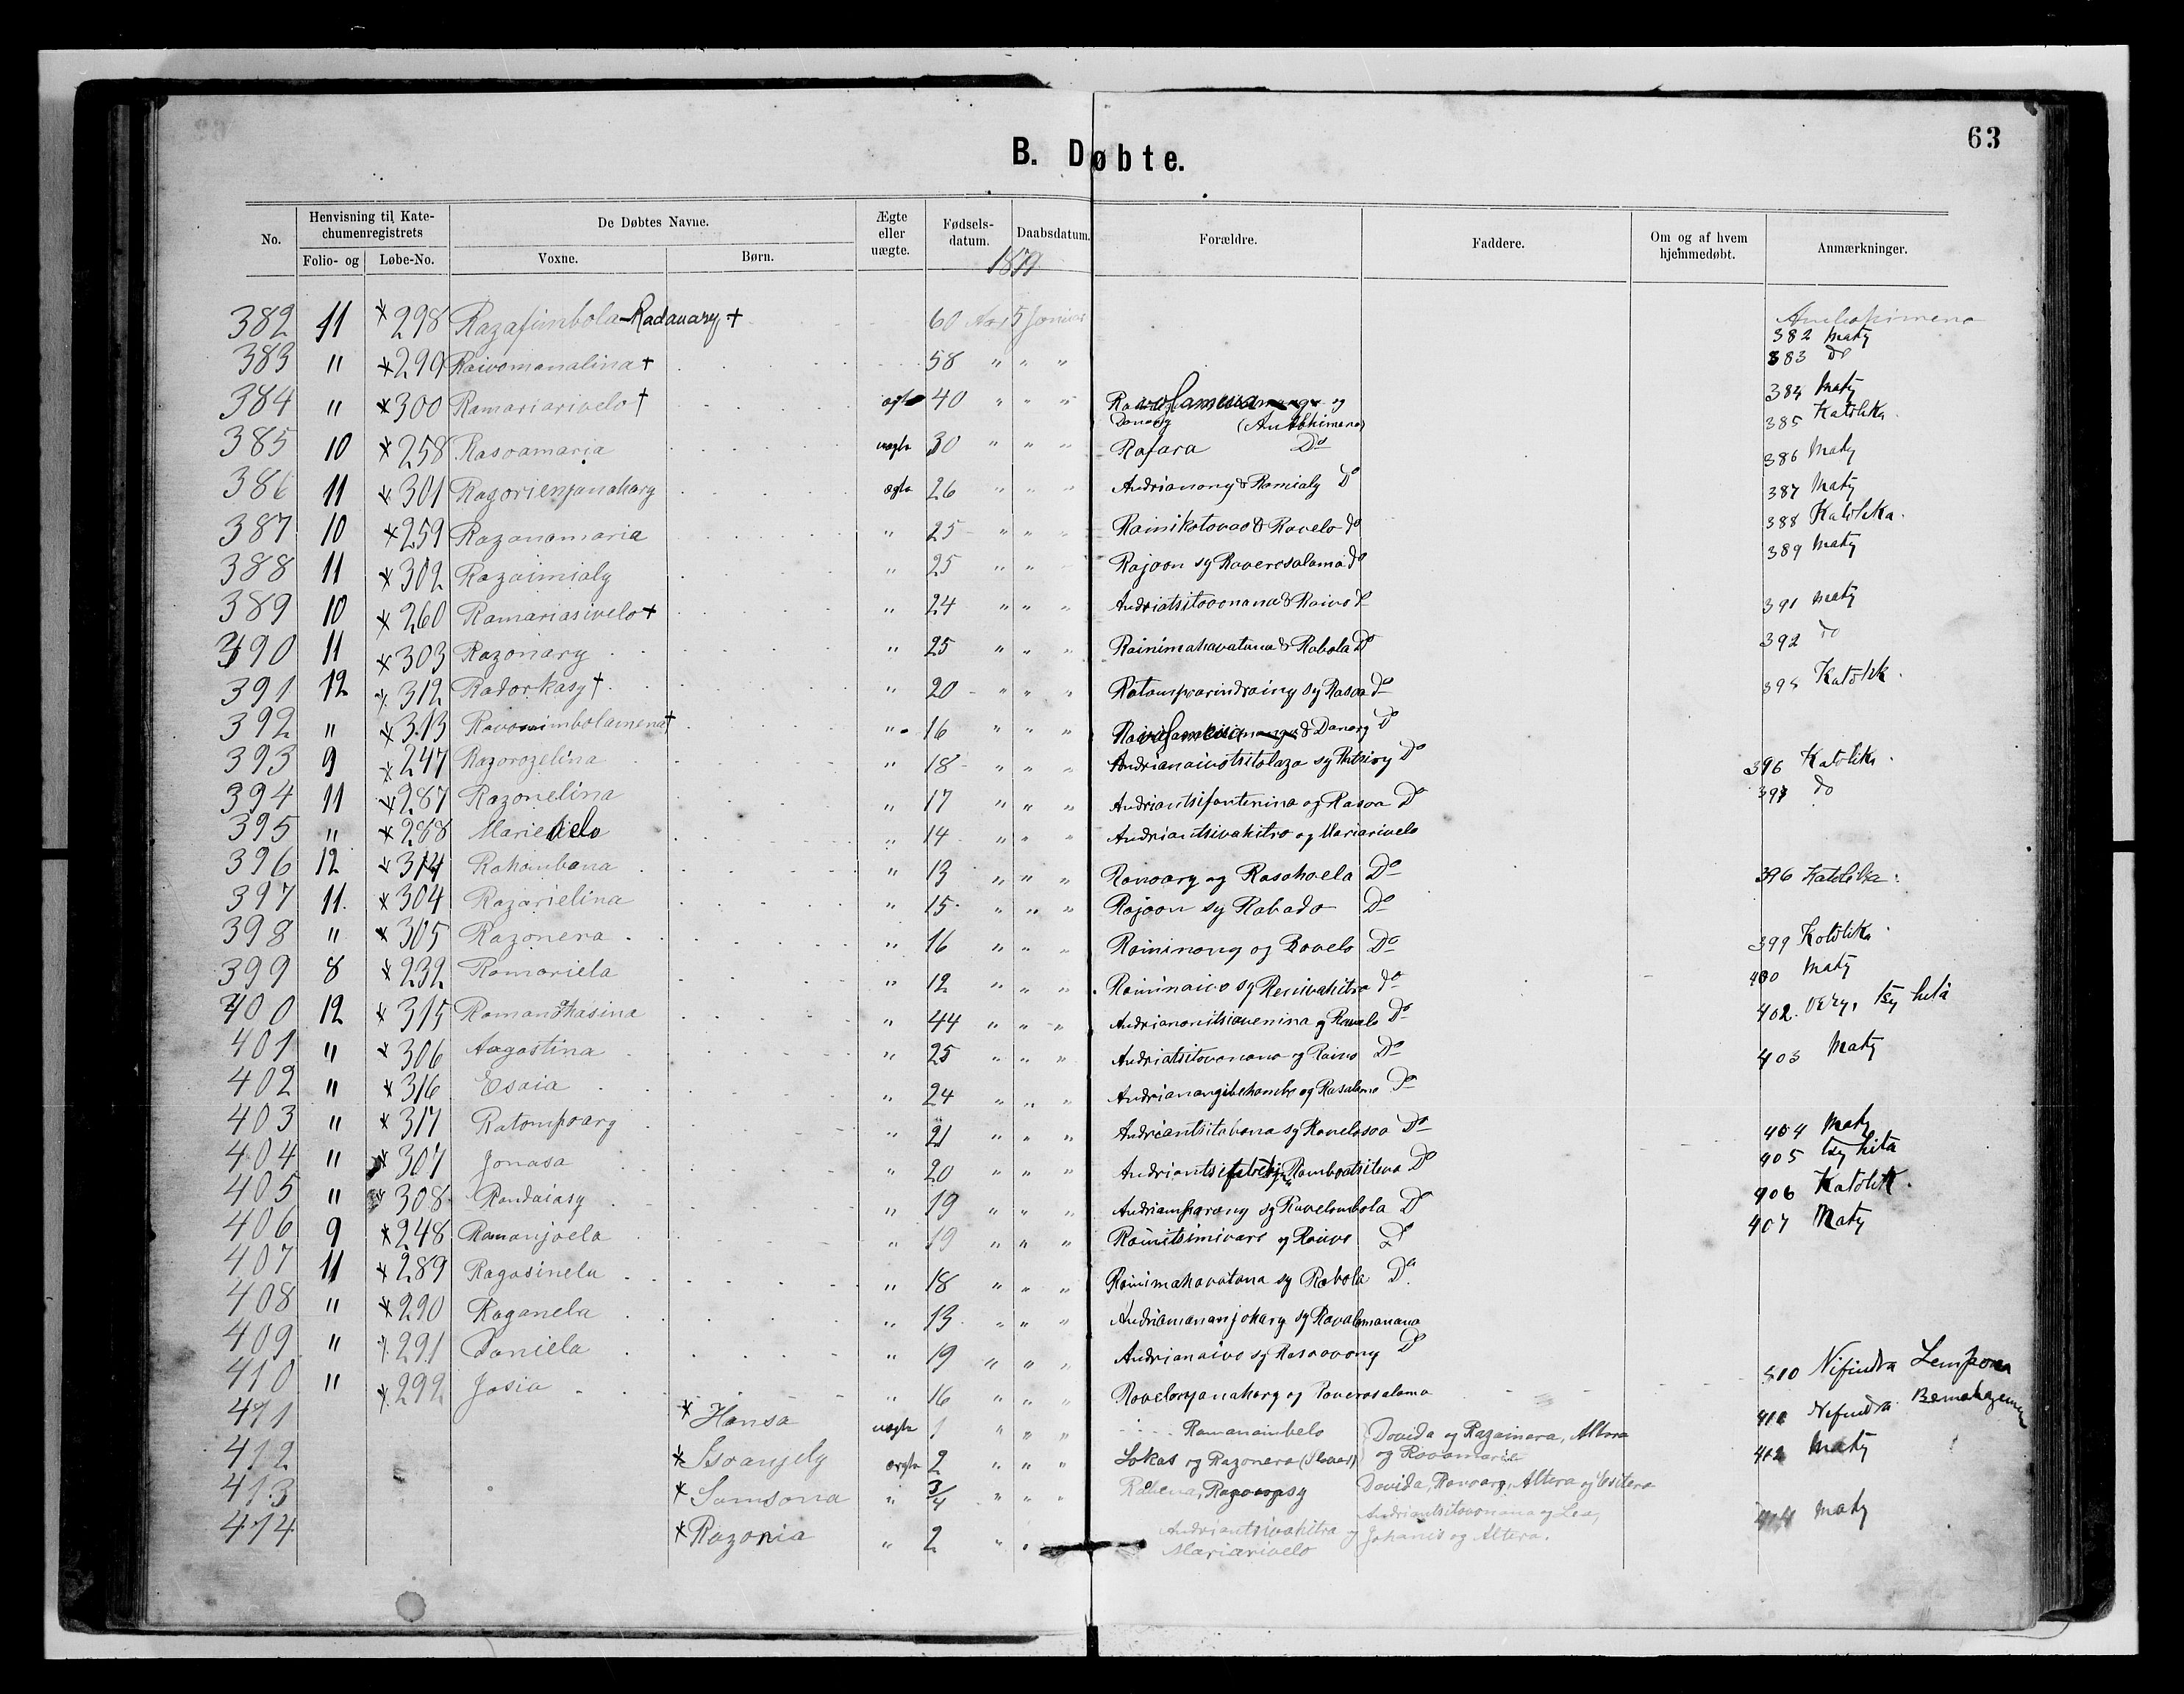 63
B. Døbte.
No. Henvisning til Kate-chumenregistrets De Døbtes Navne. Ægte eller uægte. Fødsels-datum. Daabsdatum. Forældre. Faddere. Om og af hvem hjemmedøbt. Anmærkninger.
Folio- og Løbe-No. Voxne. Børn.
1879
382 11 * 298 Razafimbola-Radanary + 60 Aar 5 Januar Ambohimena
382 Maty
383 " * 299 Raivomanalina + 58 " " " 383 do
384 " * 300 Ramariarivelo † ægte 40 " " " og 384 Maty
Danary (Ambohimena) 385 Katolika.
385 10 * 258 Rasoamaria uægte 30 " " " Rafara Do 386 Maty
386 11 * 301 ægte 26 " " " Andrianony & Ramialy Do 387 Maty
387 10 * 259 Razanamaria " 25 " " " Rainikotovao & Ravelo do 388 Katolika.
388 11 * 302 Razaimialy " 25 " " Rajaon og Raverosalama do 389 Maty
389 10 * 260 Ramariasivelo + " 24 " " " Andriatsitovonana & Raivo do 391 Maty
390 11 * 303 Razonary " 25 " " " Rainimahavatana & Rabola Do 392 do
391 12 * 312 Radorkasy † " 20 " " " Ratompoarindrainy og Rasoa do Katolik.
392 " * 313 Ravonimbolamena † " 16 " " " & Danary Do
393 9 * 247 Razorozelina " 18 " " " Andrianaivotsitolaza og Do 396 Katolika.
394 11 * 287 Razonelina " 17 " " " Andriantsifantenina og Rasoa Do 397 do
395 " * 288 Marievelo " 14 " " " Andriantsivahitra og Mariarivelo
396 12 * 314 Rahambana " 13 " " " Ranoary og Rasohoela Do 396 Katolika.
397 11 * 304 Razarielina " 15 " " " Rajaon og Rabado Do
398 " * 305 Razonera " 16 " " " Raininony og Ravelo Do 399 Katolika
399 8 * 232 Ramariela " 12 " " " Raininaivo og Renivahitra do 400 Maty
400 12 * 315 " 44 " " " og Ravelo Do 402. very, tsy hita
401 " * 306 Aagostina " 25 " " " Andriatsitovonana og Raivo Do 403 Maty
402 " * 316 Esaia " 24 " " " og Rasalama Do
403 " * 317 Ratompoary " 21 " " " Andriantsitabana og Ravelosoa Do 404 Maty
404 " * 307 Jonasa " 20 " " " Do 405 tsy hita
405 " * 308 Randaiasy " 19 " " " Andriamparany og Ravelombola Do 406 Katolik.
406 9 * 248 Ramanjoela " 19 " " " Rainitsimivare og Raivo Do 407 Maty
407 11 * 289 Ragasinela " 18 " " " Rainimahavatana og Rabola Do.
408 " * 290 Raganela " 13 " " " Andriamananjohary og Ravalomanana
409 " * 291 Daniela " 19 " " " Andrianaivo og Rasoavony Do
410 " * 292 Josia " 16 " " " Raveloyanahary og Raverosalama 410 Nifindra
411 * Hansa uægte 1 " " " Ramanambelo Davida og Razaimara, Altera og Ravamaria 411 Nifindra
412 * Evangely ægte 2 " " " Lokas og Razonera (Slaver) 412 Maty
413 * Samsona " 3/4 " " " Davida, Ranoary, Altera og
414 * Razonia " 2 " " Andriantsivahitra og Mariarivelo Andriantsitovonana og Lea, Johanis og Altera. 414 Maty